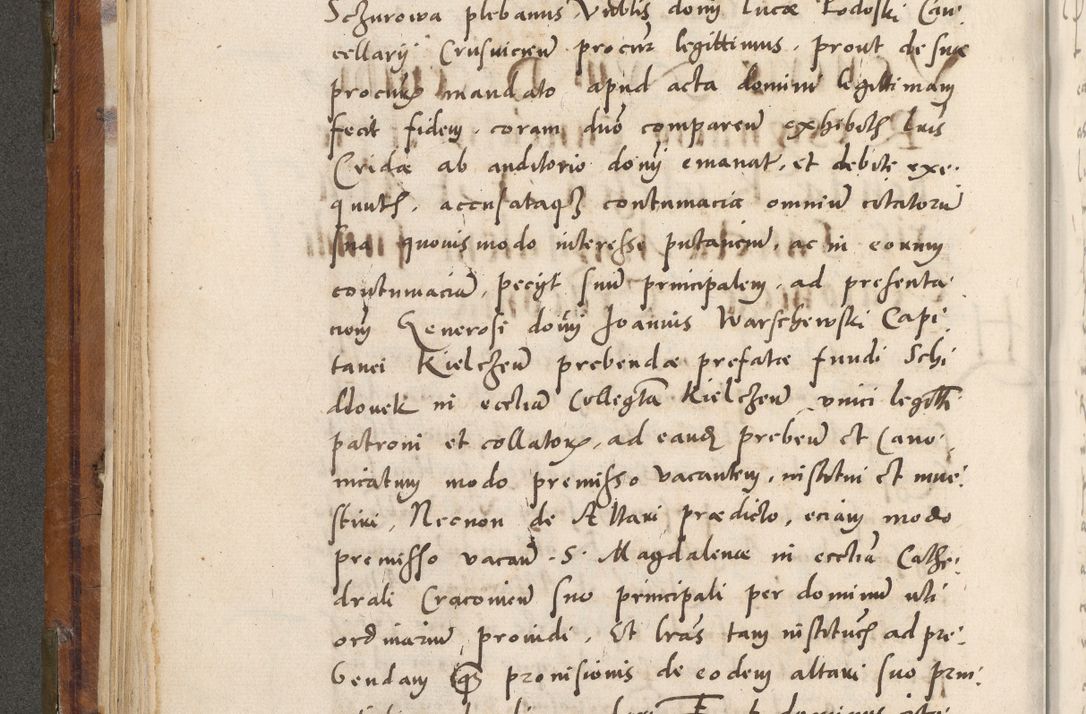 Schurowa plebanus Nobilis domi Lucæ Lodoski Can-
cellarij Crusvicien̄ procur legittimus, prout de suæ
procur mandato apud acta dominī legittimam
fecit fidem, coram duō comparen̄ exhibitis lrīs
Cridæ ab auditorio domi emanat, et debite exe-
quut, accusataqz contumacia omniū citatorū
sua quovismodo interesse putanciū, ac in eorum
contumaciā, peciit suū principalem, ad presenta-
cionem Generosi domi Joannis Warschewski Capi-
tanei Kielczen̄ prebendæ prefatæ fundi Schi
dlovek in ecclīa Collegta Kielczen̄ unici legitti
patroni et collator, ad eand preben̄ et Cano-
nicatum modo premisso vacantem, institui et inve-
stiri, Necnon de Altari prædicto, eciam modo
premisso vacan̄ S. Magdalenæ in ecclīa Cathe-
drali Cracovien̄ suo principali per dominum uti
ordinariū, provideri, Et lrās tam institut ad pre-
bendam quam provisionis de eodem altari suo prin-